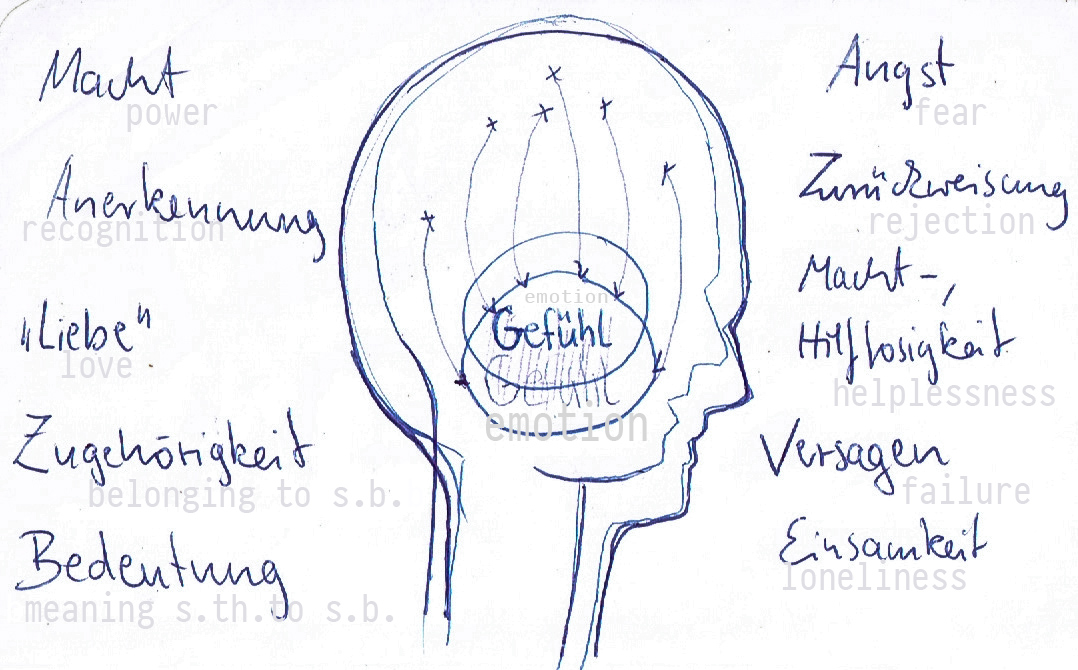 Macht
power
Anerkennung
recognition
"Liebe"
love
Zugehörigkeit
belonging to s.b.
Bedeutung
meaning s.th.to s.b.
emotion
Gefühl
Gefühl
emotion
Angst
fear
Zurückweisung
rejection
Macht-,
Hilflosigkeit
helplessness
Versagen
failure
Einsamkeit
loneliness